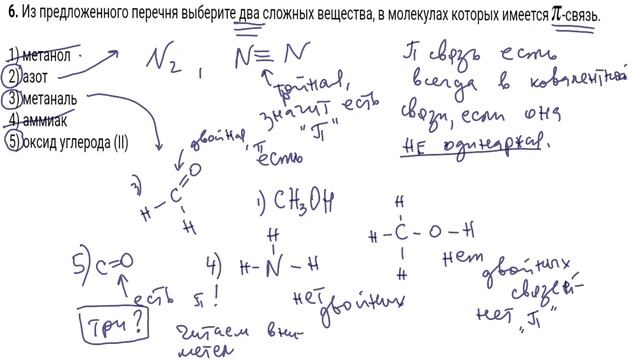 6. Из предложенного перечня выберите два сложных вещества, в молекулах которых имеется π-связь.
1) метанол
2) азот
3) метаналь
4) аммиак
5) оксид углерода (II)
N₂, N≡N
тройная,
значит есть
"П"
П связь есть
всегда в ковалентной
связи, если она
не одинарная.
двойная, П
есть
3)
O
C
H
H
1) CH₃OH
H
H-C-O-H
H
нет
двойных
связей-
нет "П"
5) C=O
есть П!
три?
4)
H
H-N-H
нет
двойных
читаем вни-
мател